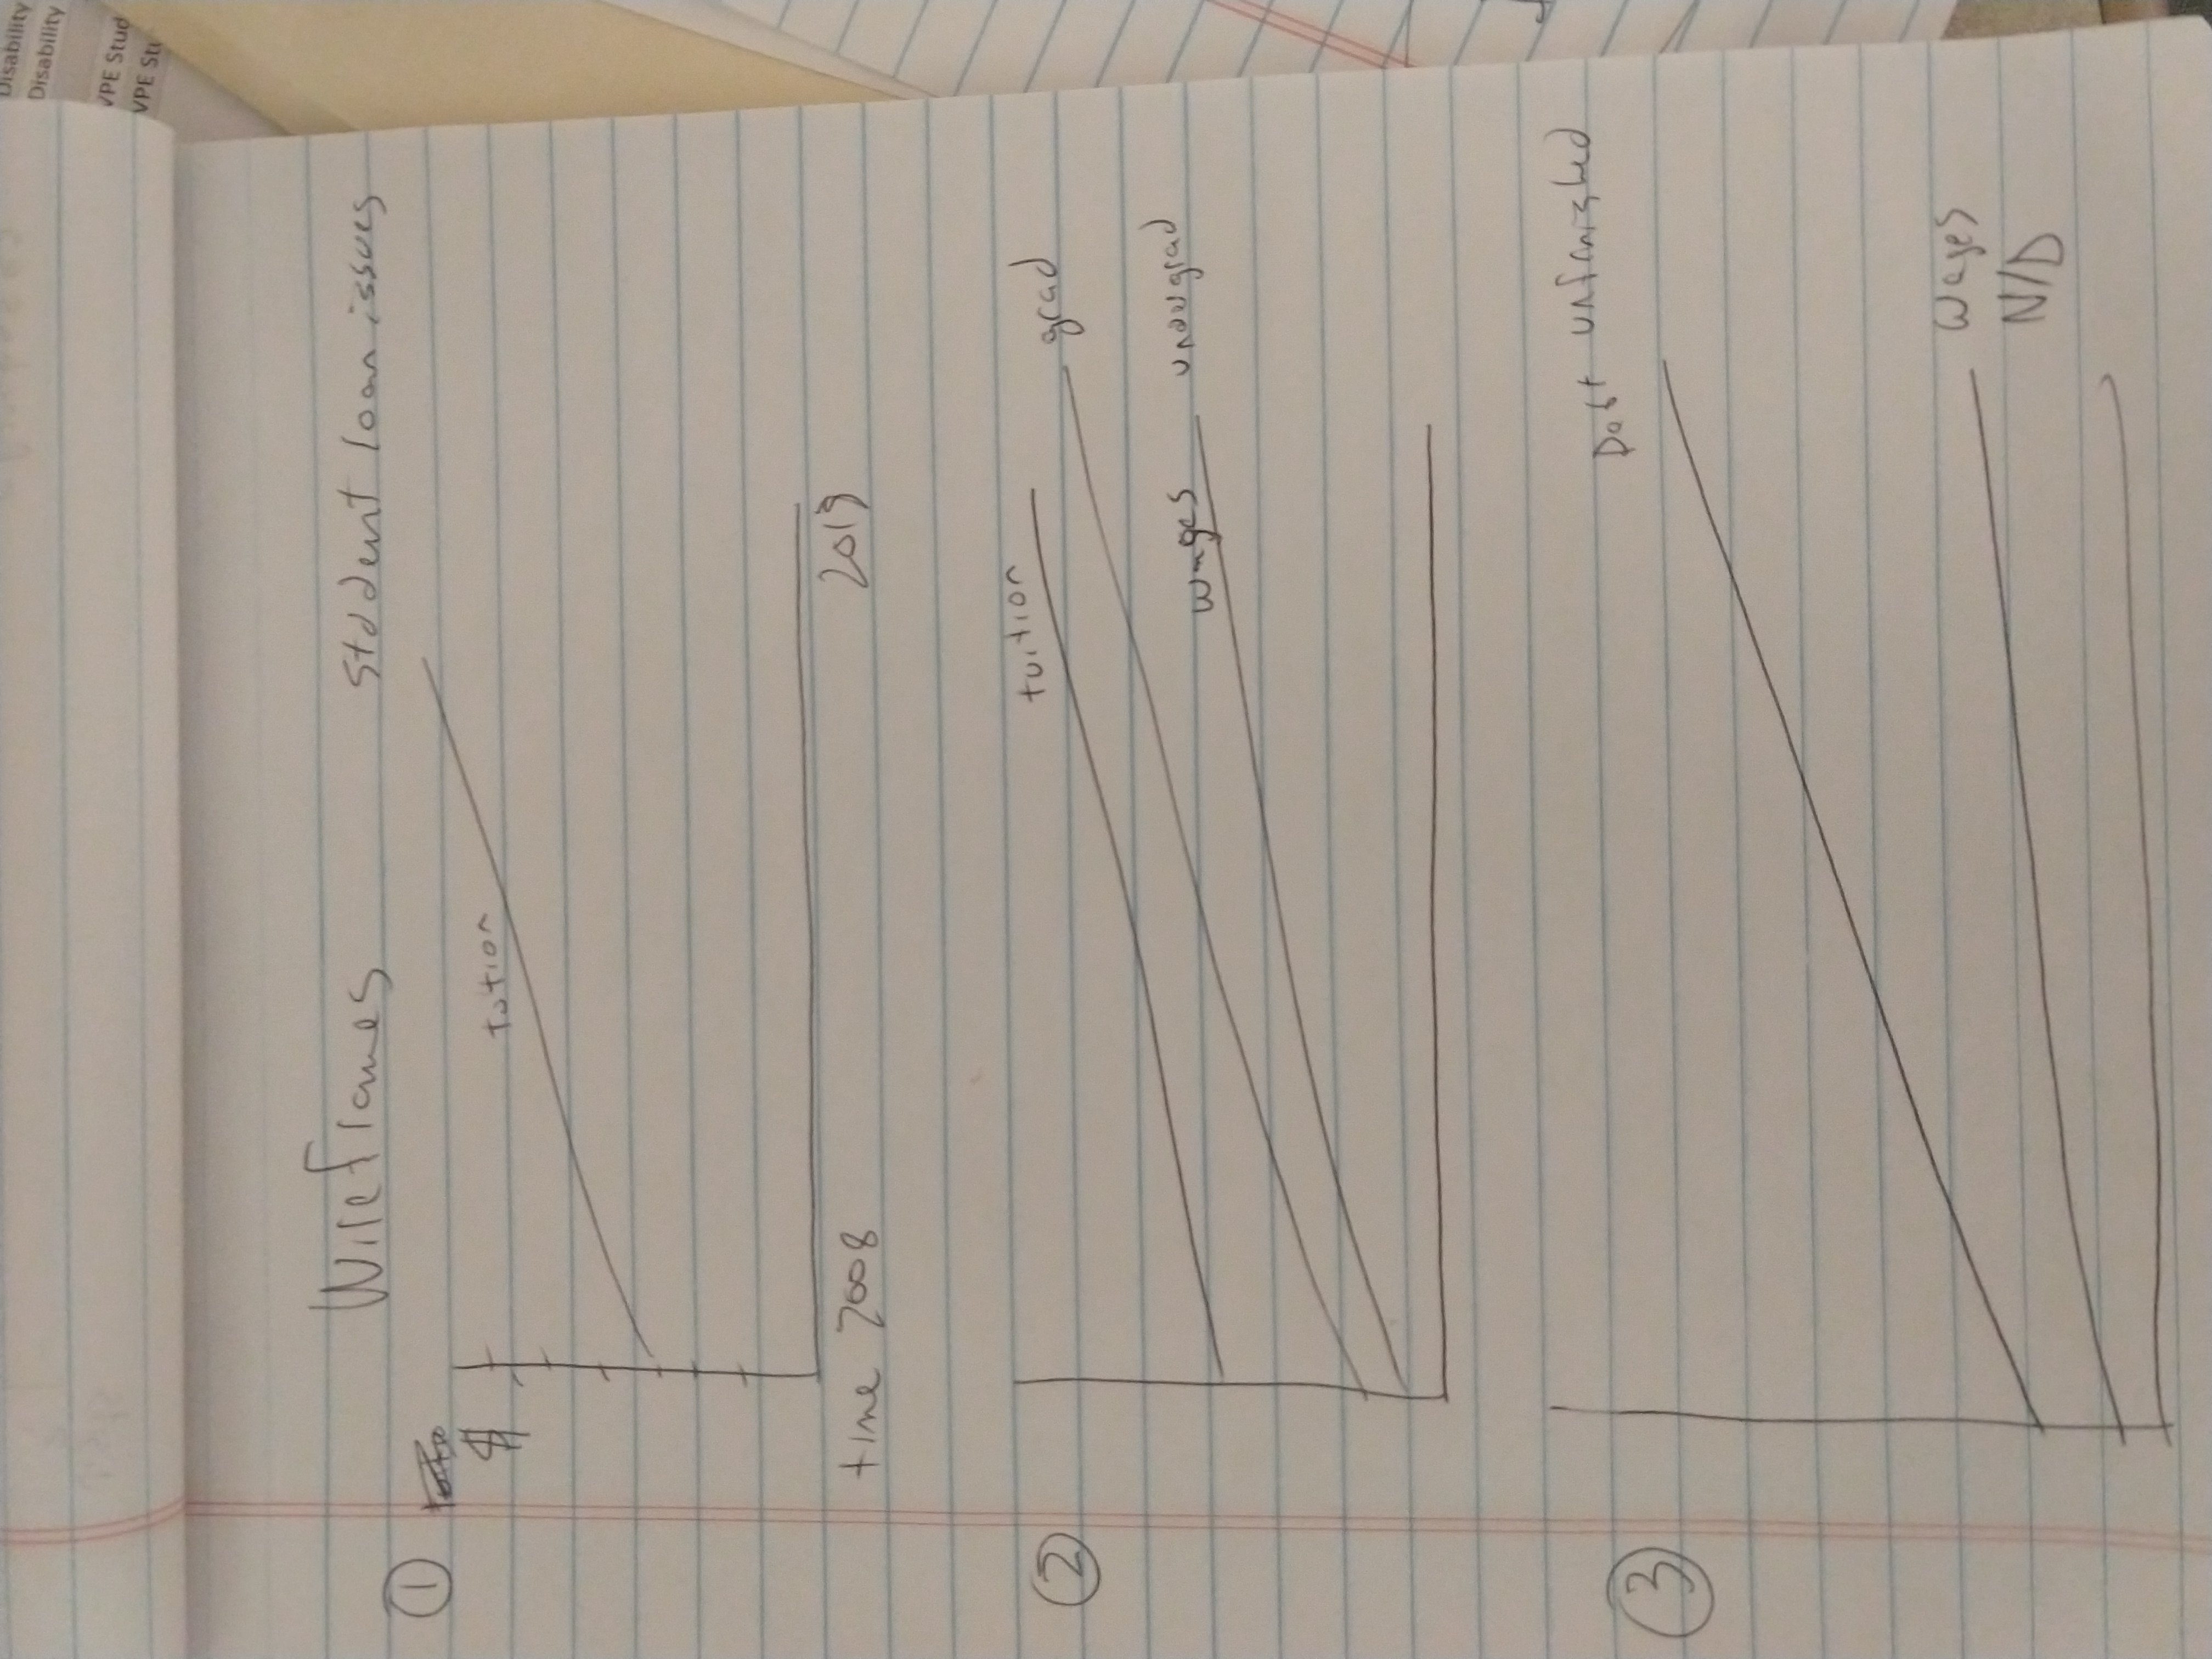 Disability
Disability
VPE Stud
VPE Stu
Wireframes
Student loan issues
1
$
tution
time 2008
2
tuition
grad
wages undergrad
3
Debt unfinished
Wages
N/D